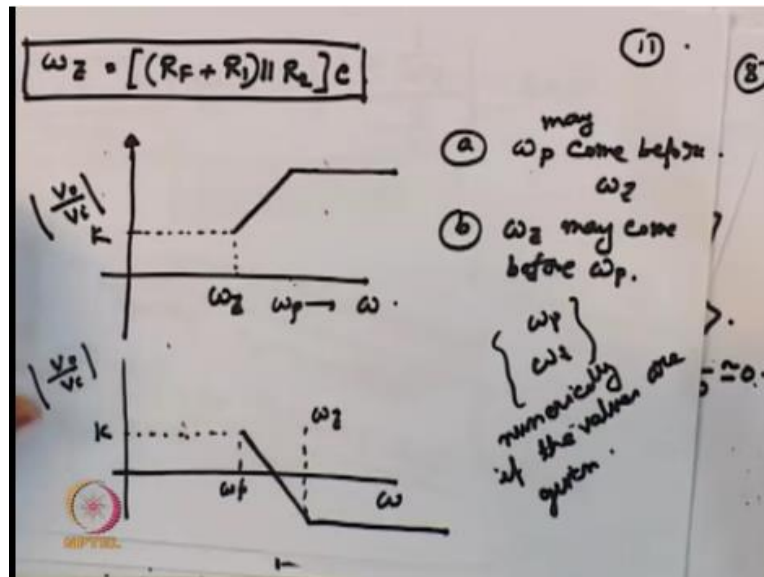 ωz = [(RF + R1) || R2] C
11
8
|Vo/Vi|
K
ωz ωp → ω
|Vo/Vi|
K
ωz
ωp
ω
NPTEL
a ωp may come before
ωz
b ωz may come
before ωp.
ωp
ωz
numerically
if the values are
given.
≃0.